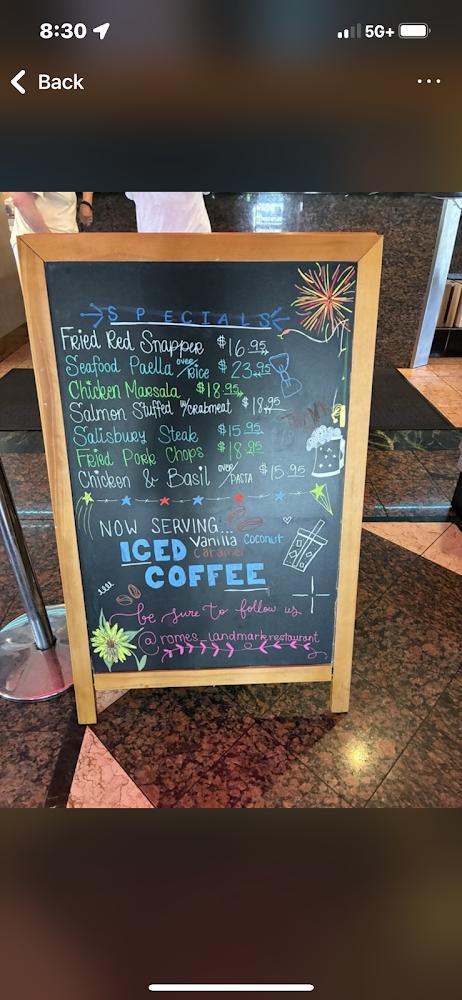 8:30
5G+
Back
SPECIALS
Fried Red Snapper $16.95
Seafood Paella over/Rice $23.95
Chicken Marsala $18.95
Salmon Stuffed w/crabmeat $18.95
Salisbury Steak $15.95
Fried Pork Chops $18.95
Chicken & Basil over/PASTA $15.95
NOW SERVING...
ICED Vanilla Coconut
Caramel
COFFEE
be sure to follow us
@romes_landmarkrestaurant